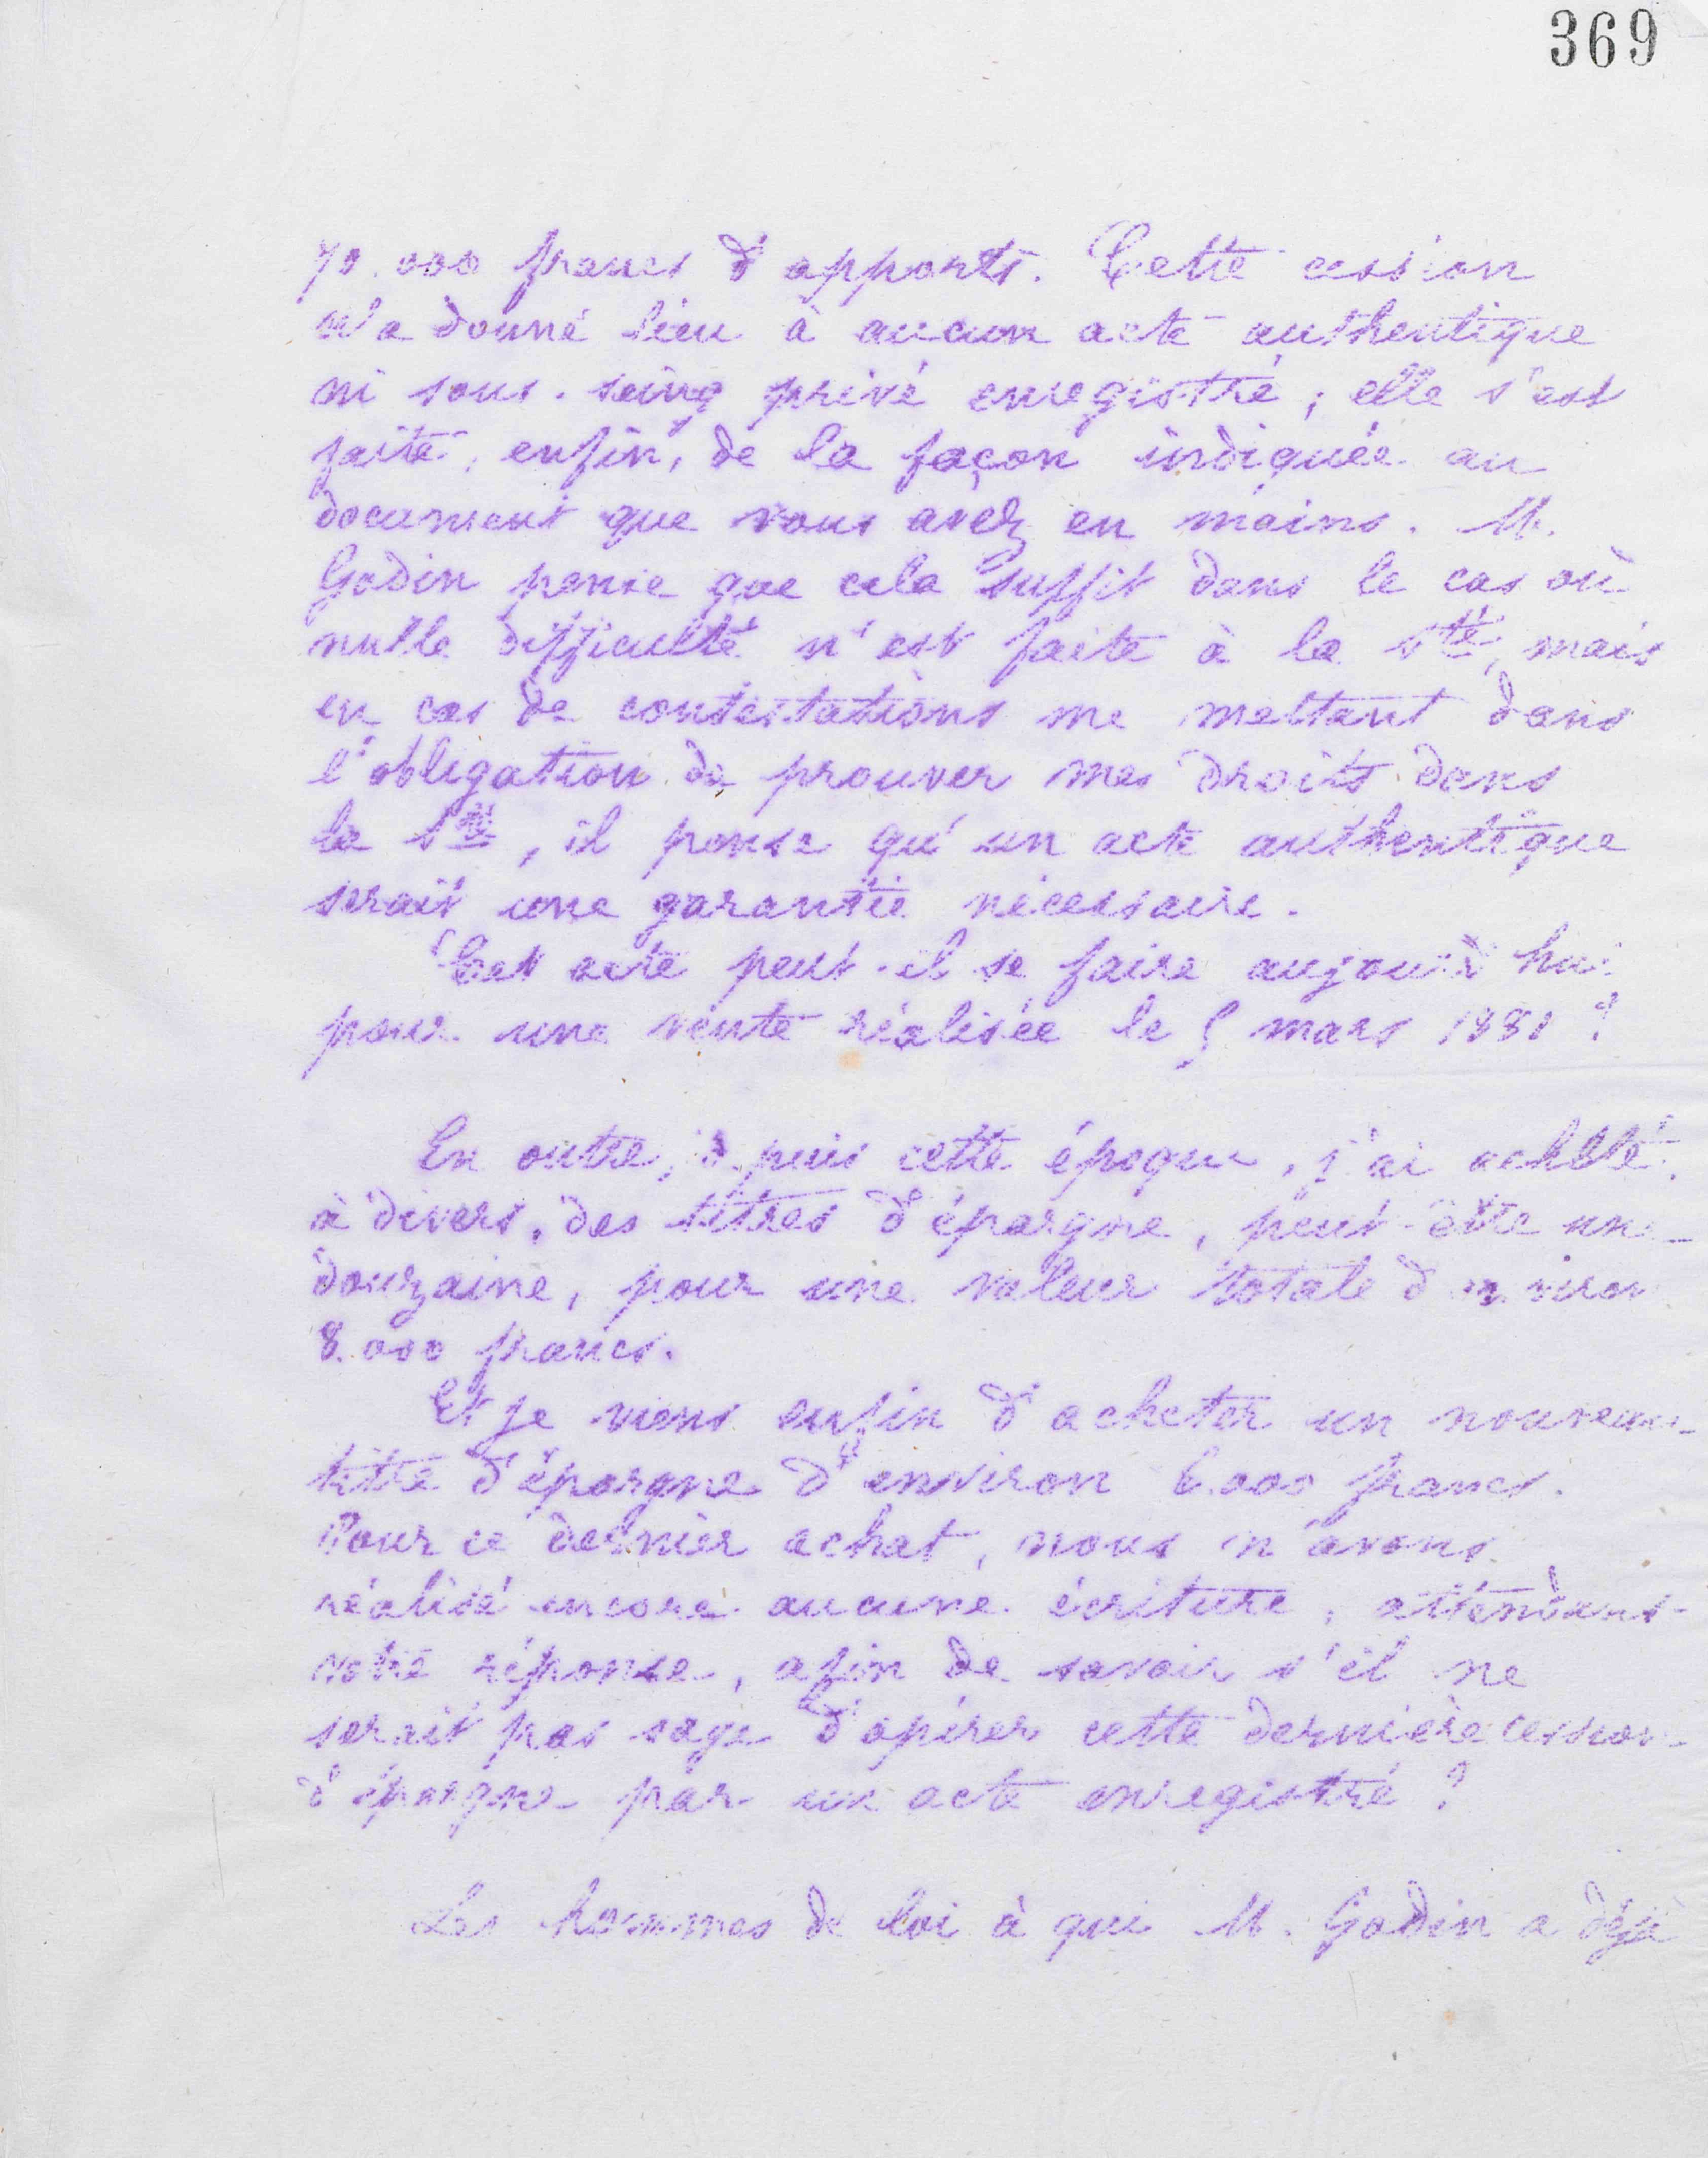 369
70.000 francs d'apports. Cette cession
n'a donné lieu à aucun acte authentique
ni sous-seing privé enregistré ; elle s'est
faite, enfin, de la façon indiquée au
document que vous avez en mains. M.
Godin pense que cela suffit dans le cas où
nulle difficulté n'est faite à la Sté, mais
en cas de contestations me mettant dans
l'obligation de prouver mes droits dans
la Sté, il pense qu'un acte authentique
serait une garantie nécessaire.
Cet acte peut-il se faire aujourd'hui
pour une vente réalisée le 5 mars 1881 ?
En outre, depuis cette époque, j'ai acheté
à divers, des titres d'épargne, peut-être une
douzaine, pour une valeur totale d'environ
8.000 francs.
Et je viens enfin d'acheter un nouveau
titre d'épargne d'environ 6.000 francs.
Pour ce dernier achat, nous n'avons
réalisé encore aucune écriture, attendant
votre réponse, afin de savoir s'il ne
serait pas sage d'opérer cette dernière cession
d'épargne par un acte enregistré ?
Les hommes de loi à qui M. Godin a déjà